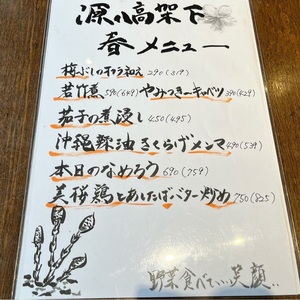 源八高架下
春メニュー
梅ぶしのわらび和え 290(319)
若竹煮 590(649) やみつきキャベツ 390(429)
茄子の煮浸し 450(495)
沖縄辣油きくらげメンマ 490(539)
本日のなめろう 690(759)
美桜鶏とあしたばバター炒め 750(825)
野菜食べてぃぃ笑顔..